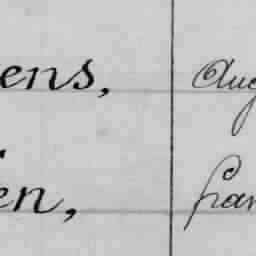 ens, Aug
en, Jan